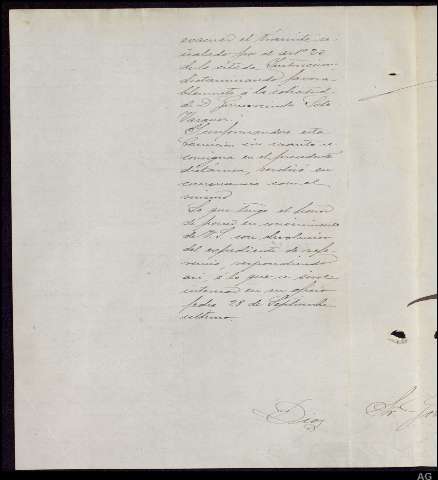 evacuar el trámite se-
ñalado por el artº 22
de la citada Instruccion
dictaminando favora-
blemente a la solicitud
de D. Gumersindo Soto
Vazquez;
Y conformandose esta
Comision con cuanto se
consigna en el precedente
dictamen, resolvió en
consonancia con el
mismo
Lo que tengo el honor
de poner en conocimiento
de V.S. con devolucion
del expediente de refe-
rencia, respondiendo
asi a lo que se sirve
interesar en su oficio
fecha 28 de Septiembre
ultimo.
Dios
Sr.
AG